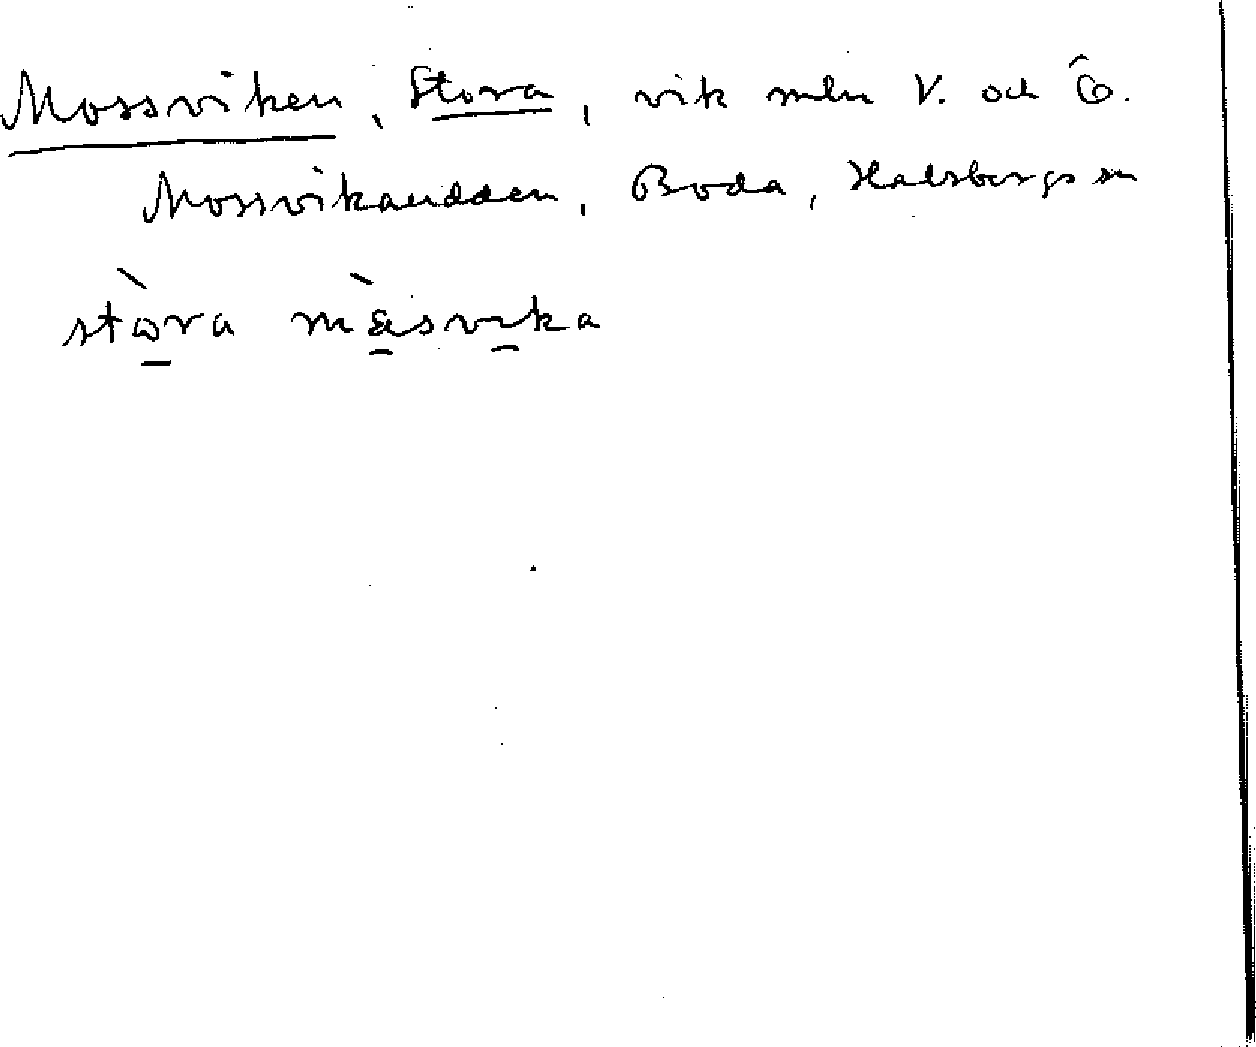 Mossviken, Stora, vik mln V. och Ö.
Mossvikaudden, Boda, Halsbergs sn
stòra màsvika